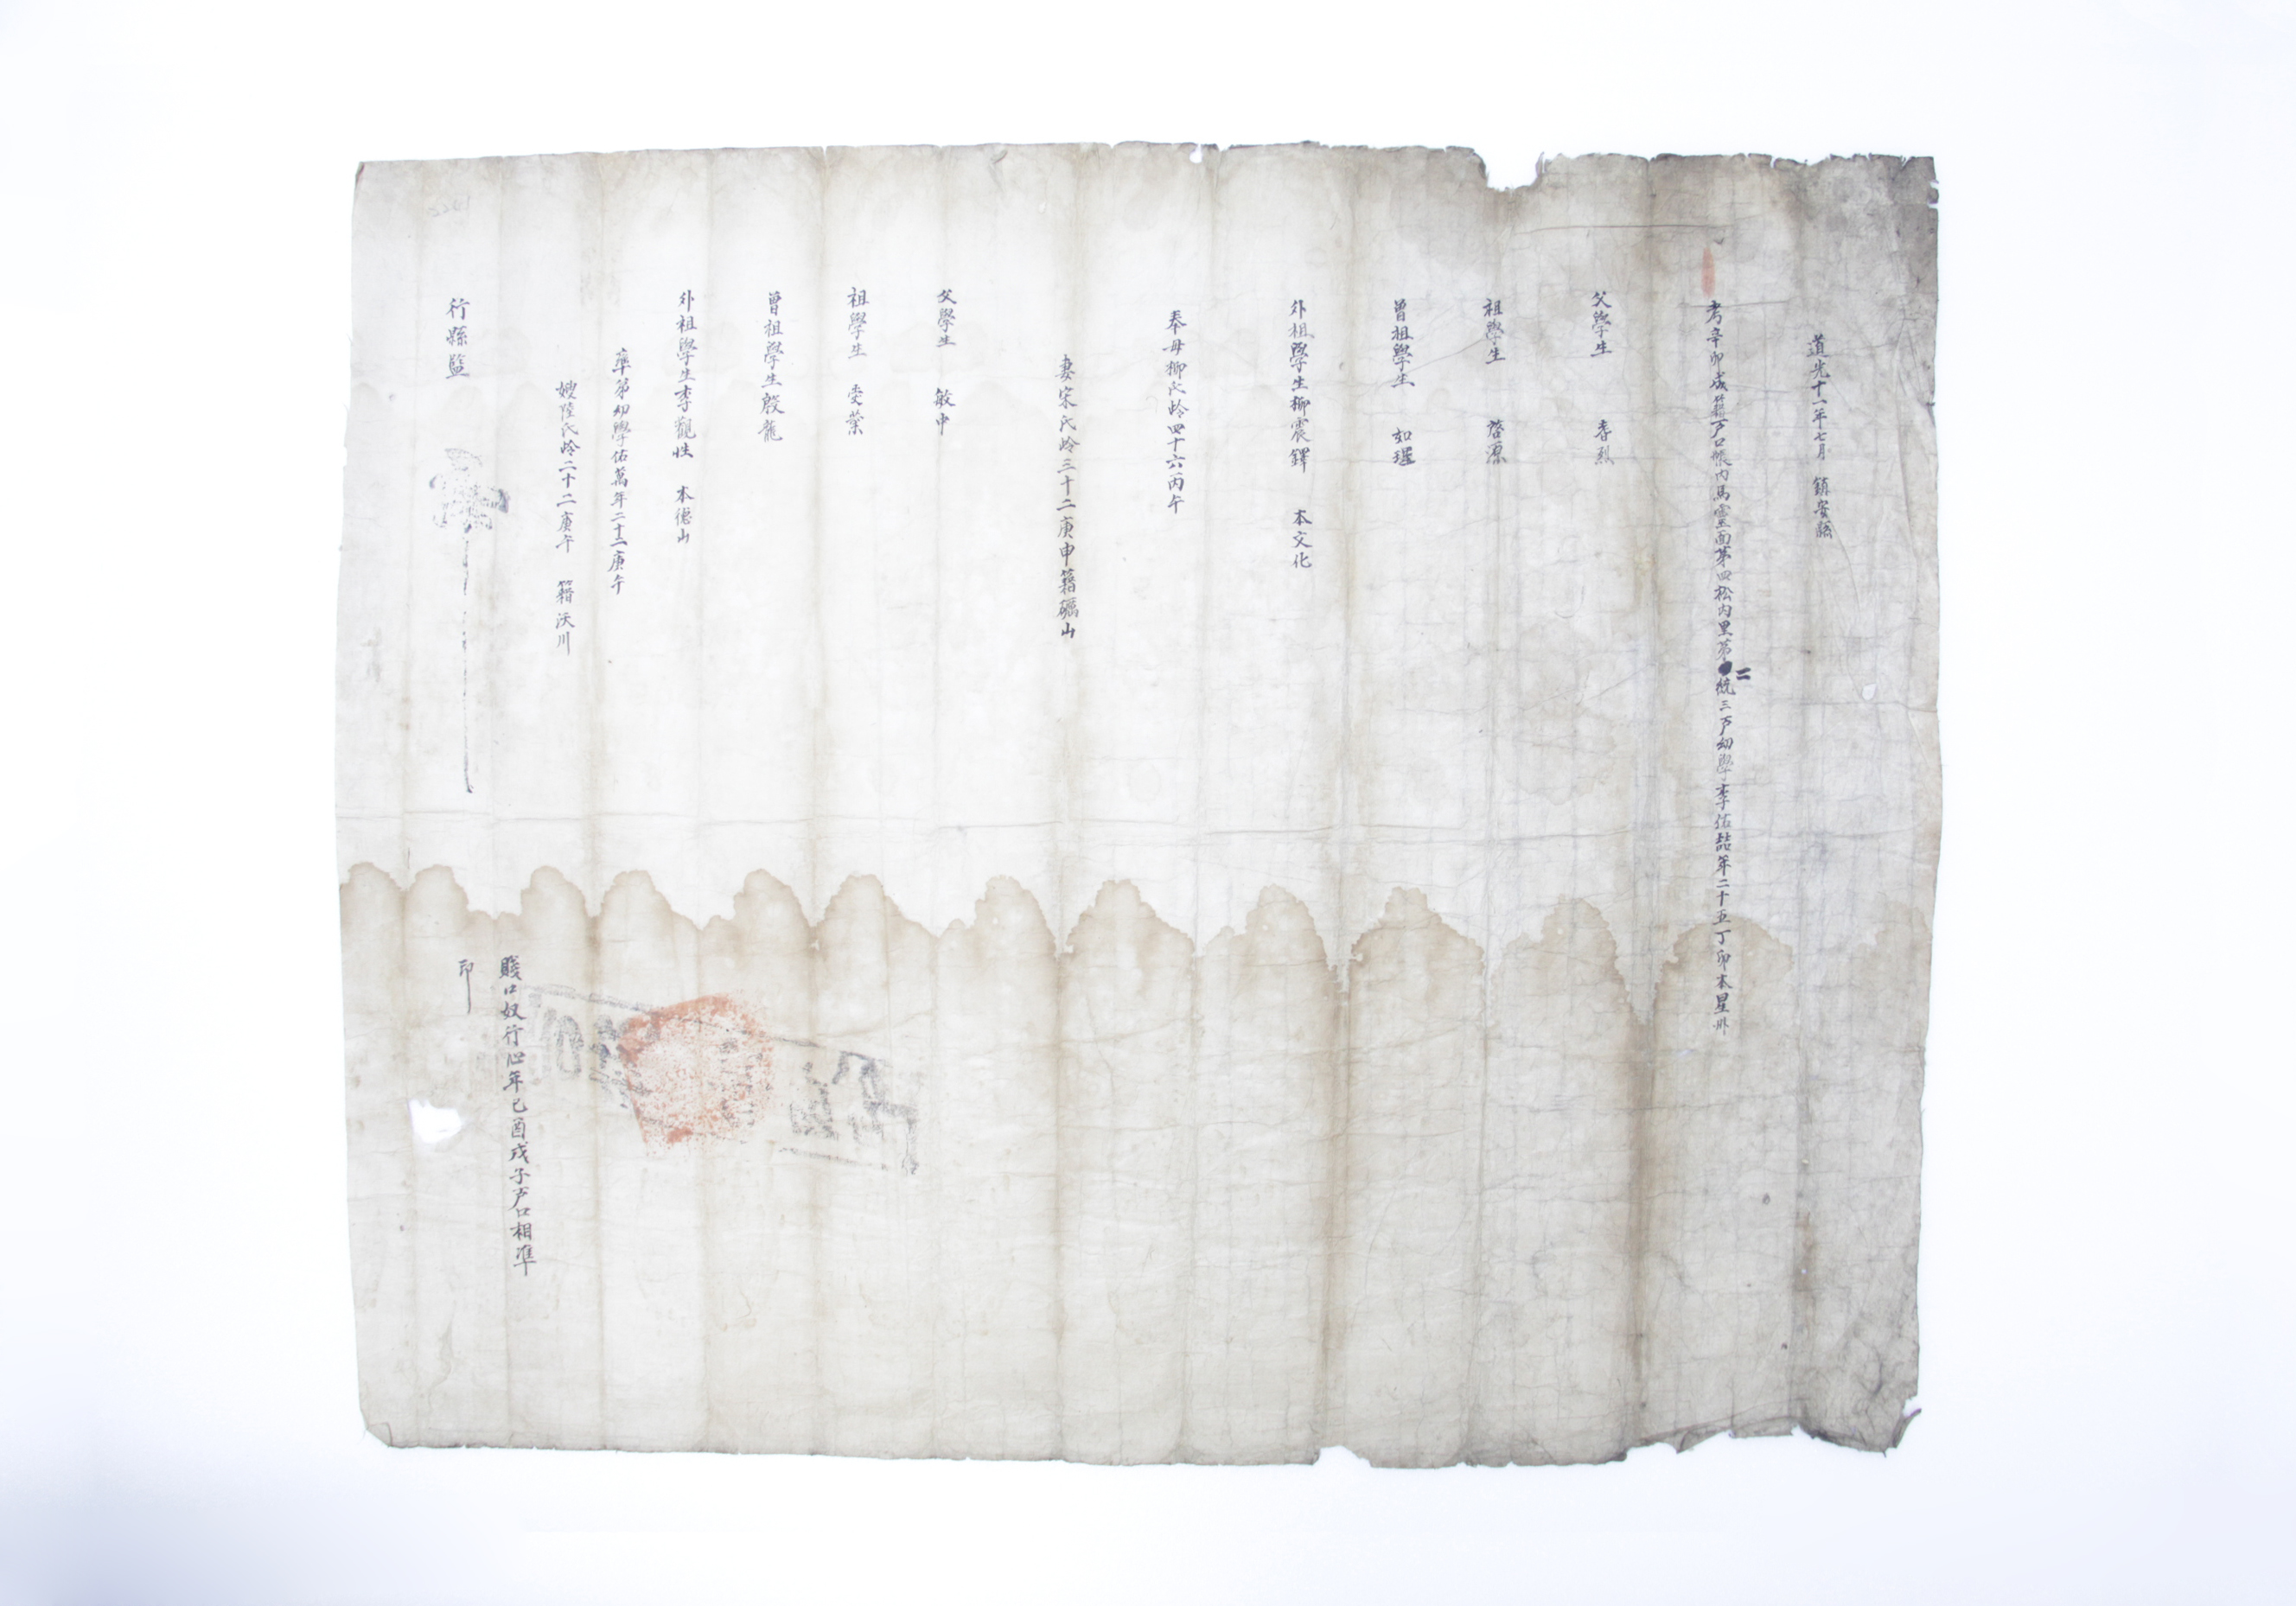 道光十一年七月 鎭安縣
考辛卯成籍戶口帳內馬靈面第四松內里第二統三戶幼學李佑喆年二十五丁卯本星州
父學生 春烈
祖學生 啓源
曾祖學生 如珵
外祖學生柳震鐸 本文化
奉母柳氏齡四十六丙午
妻宋氏齡三十二庚申籍礪山
父學生 敏中
祖學生 委業
曾祖學生殷龍
外祖學生李觀性 本德山
率弟幼學佑萬年二十二庚午
嫂陸氏齡二十二庚午 籍沃川
賤口奴行心年己酉戊子戶口相準
行縣監
印